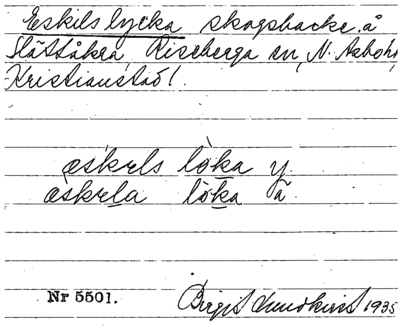 Eskils lycka skogsbacke å
Slättåkra, Riseberga sn, N. Åsbohd
Kristianstad l.
æskels løka y.
æskela løka ä.
Nr 5501. Birgit Lundkvist 1935